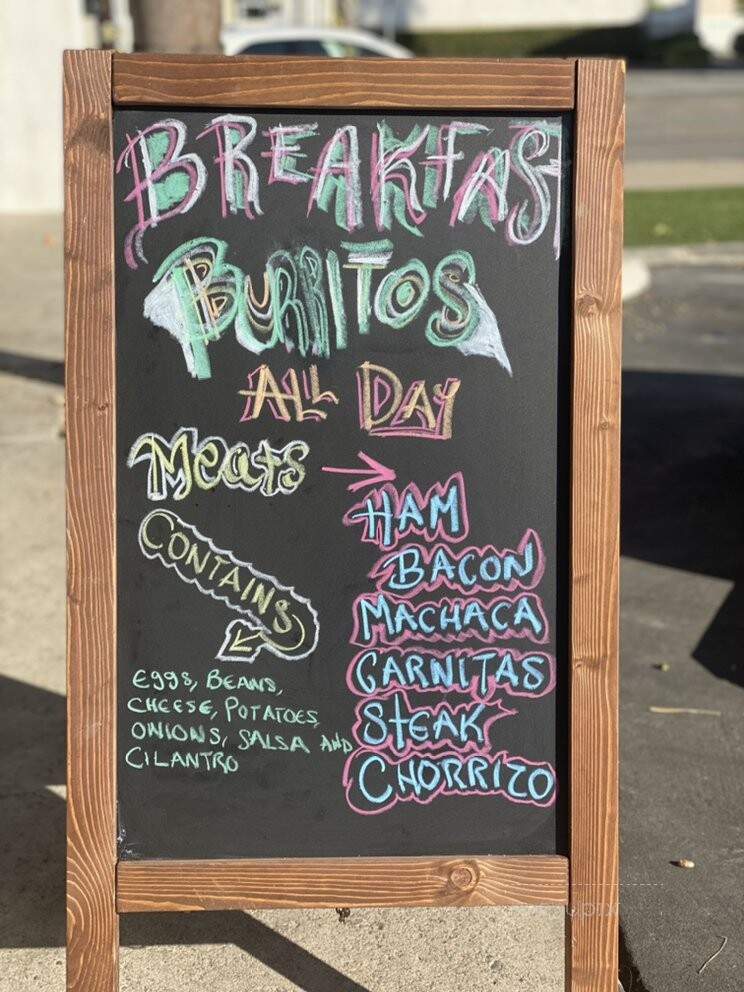 BREAKFAST
BURRITOS
ALL DAY
Meats
HAM
BACON
MACHACA
CARNITAS
StEAK
CHORRIZO
CONTAINS
EGGS, BEANS,
CHEESE, POTATOES
ONIONS, SALSA AND
CILANTRO